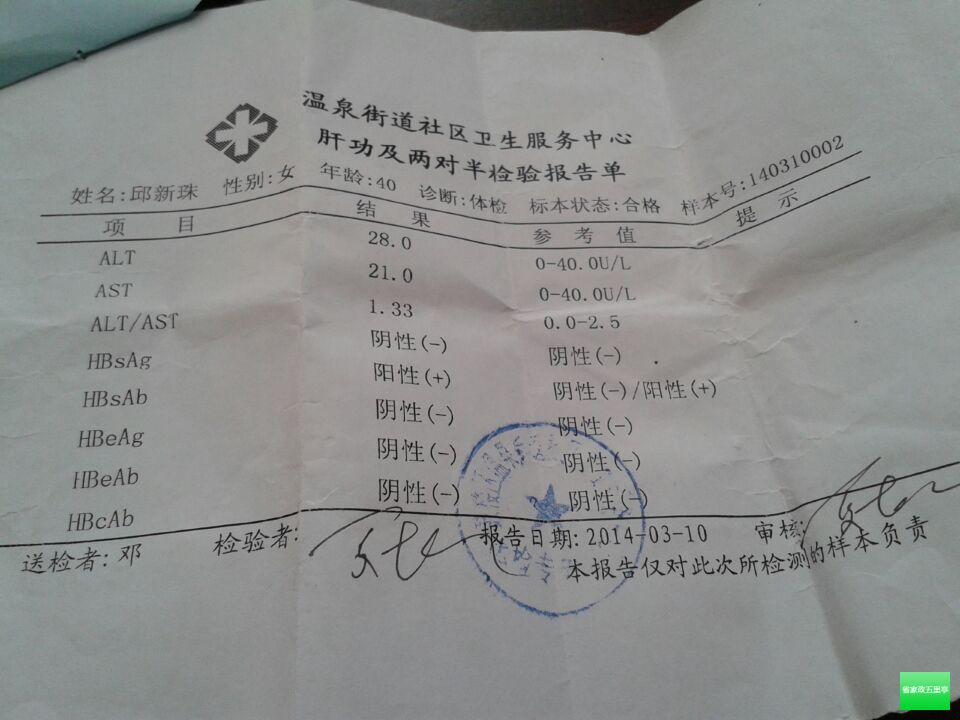 温泉街道社区卫生服务中心
肝功及两对半检验报告单
姓名:邱新珠 性别:女 年龄:40 诊断:体检 标本状态:合格 样本号:140310002
项 目 结 果 参 考 值 提 示
ALT 28.0 0-40.0U/L
AST 21.0 0-40.0U/L
ALT/AST 1.33 0.0-2.5
HBsAg 阴性(-) 阴性(-)
HBsAb 阳性(+) 阴性(-)/阳性(+)
HBeAg 阴性(-) 阴性(-)
HBeAb 阴性(-) 阴性(-)
HBcAb 阴性(-) 阴性(-)
送检者:邓 检验者: 报告日期:2014-03-10 审核:
本报告仅对此次所检测的样本负责
省家政五里亭